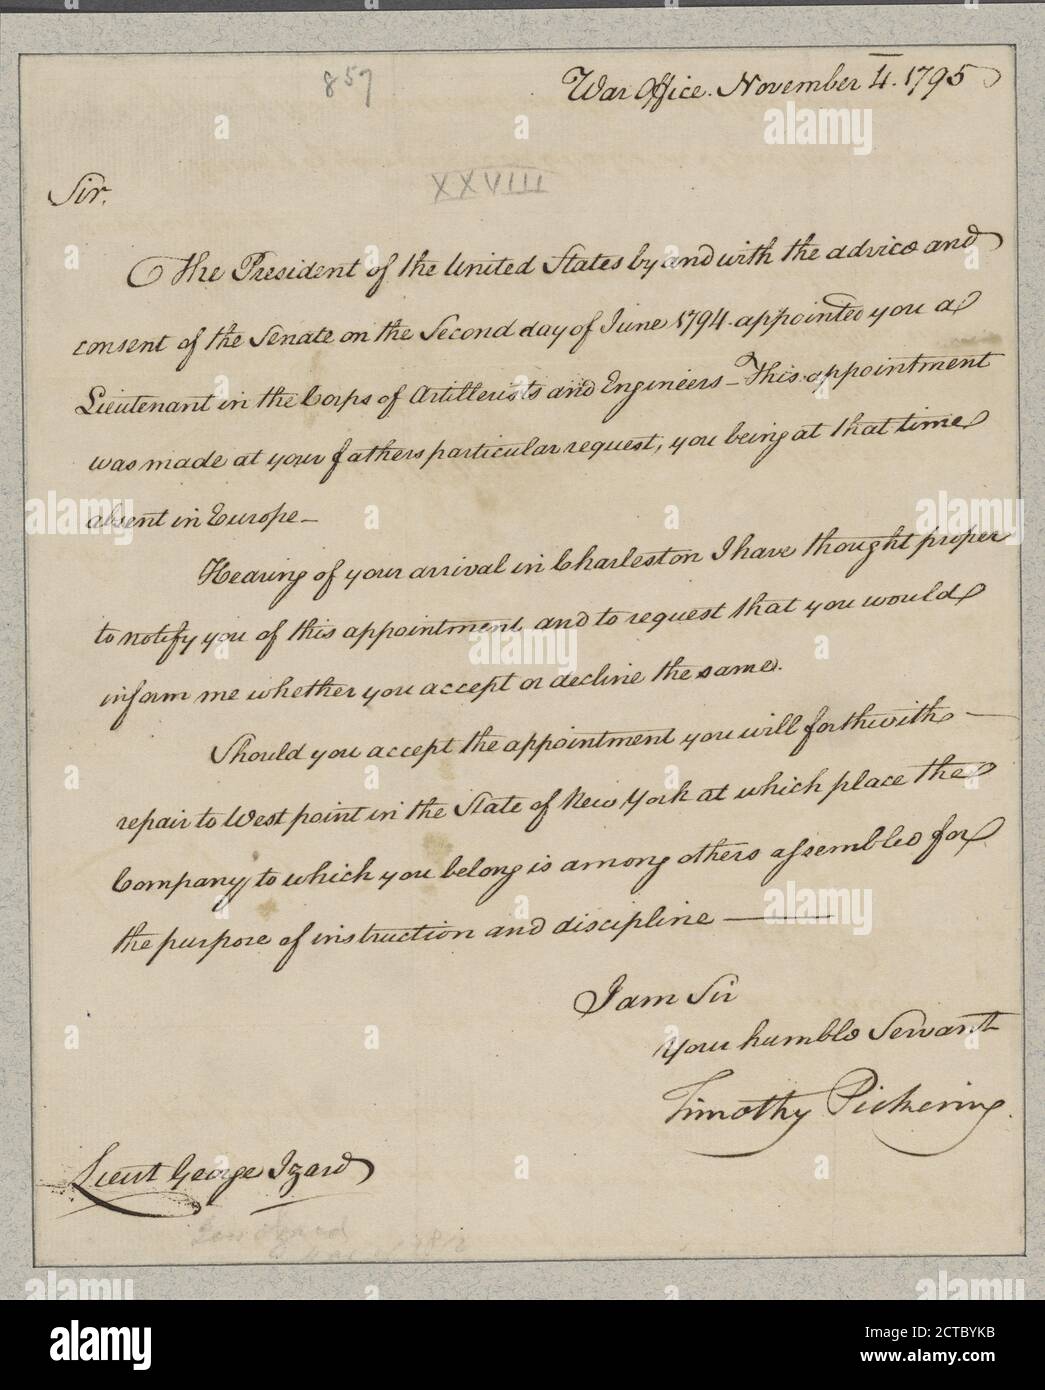 857
War Office. November 4. 1795
XXVIII
Sir.
The President of the United States by and with the advice and
consent of the Senate on the Second day of June 1794. appointed you a
Lieutenant in the Corps of Artillerists and Engineers – This appointment
was made at your fathers particular request, you being at that time
absent in Europe –
Hearing of your arrival in Charleston I have thought proper
to notify you of this appointment and to request that you would
inform me whether you accept or decline the same.
Should you accept the appointment you will forthwith –
repair to West point in the State of New York at which place the
Company to which you belong is among others assembled for
the purpose of instruction and discipline ———
I am Sir
Your humble Servant
Timothy Pickering.
Lieut George Izard
alamy
Image ID: 2CTBYKB
www.alamy.com